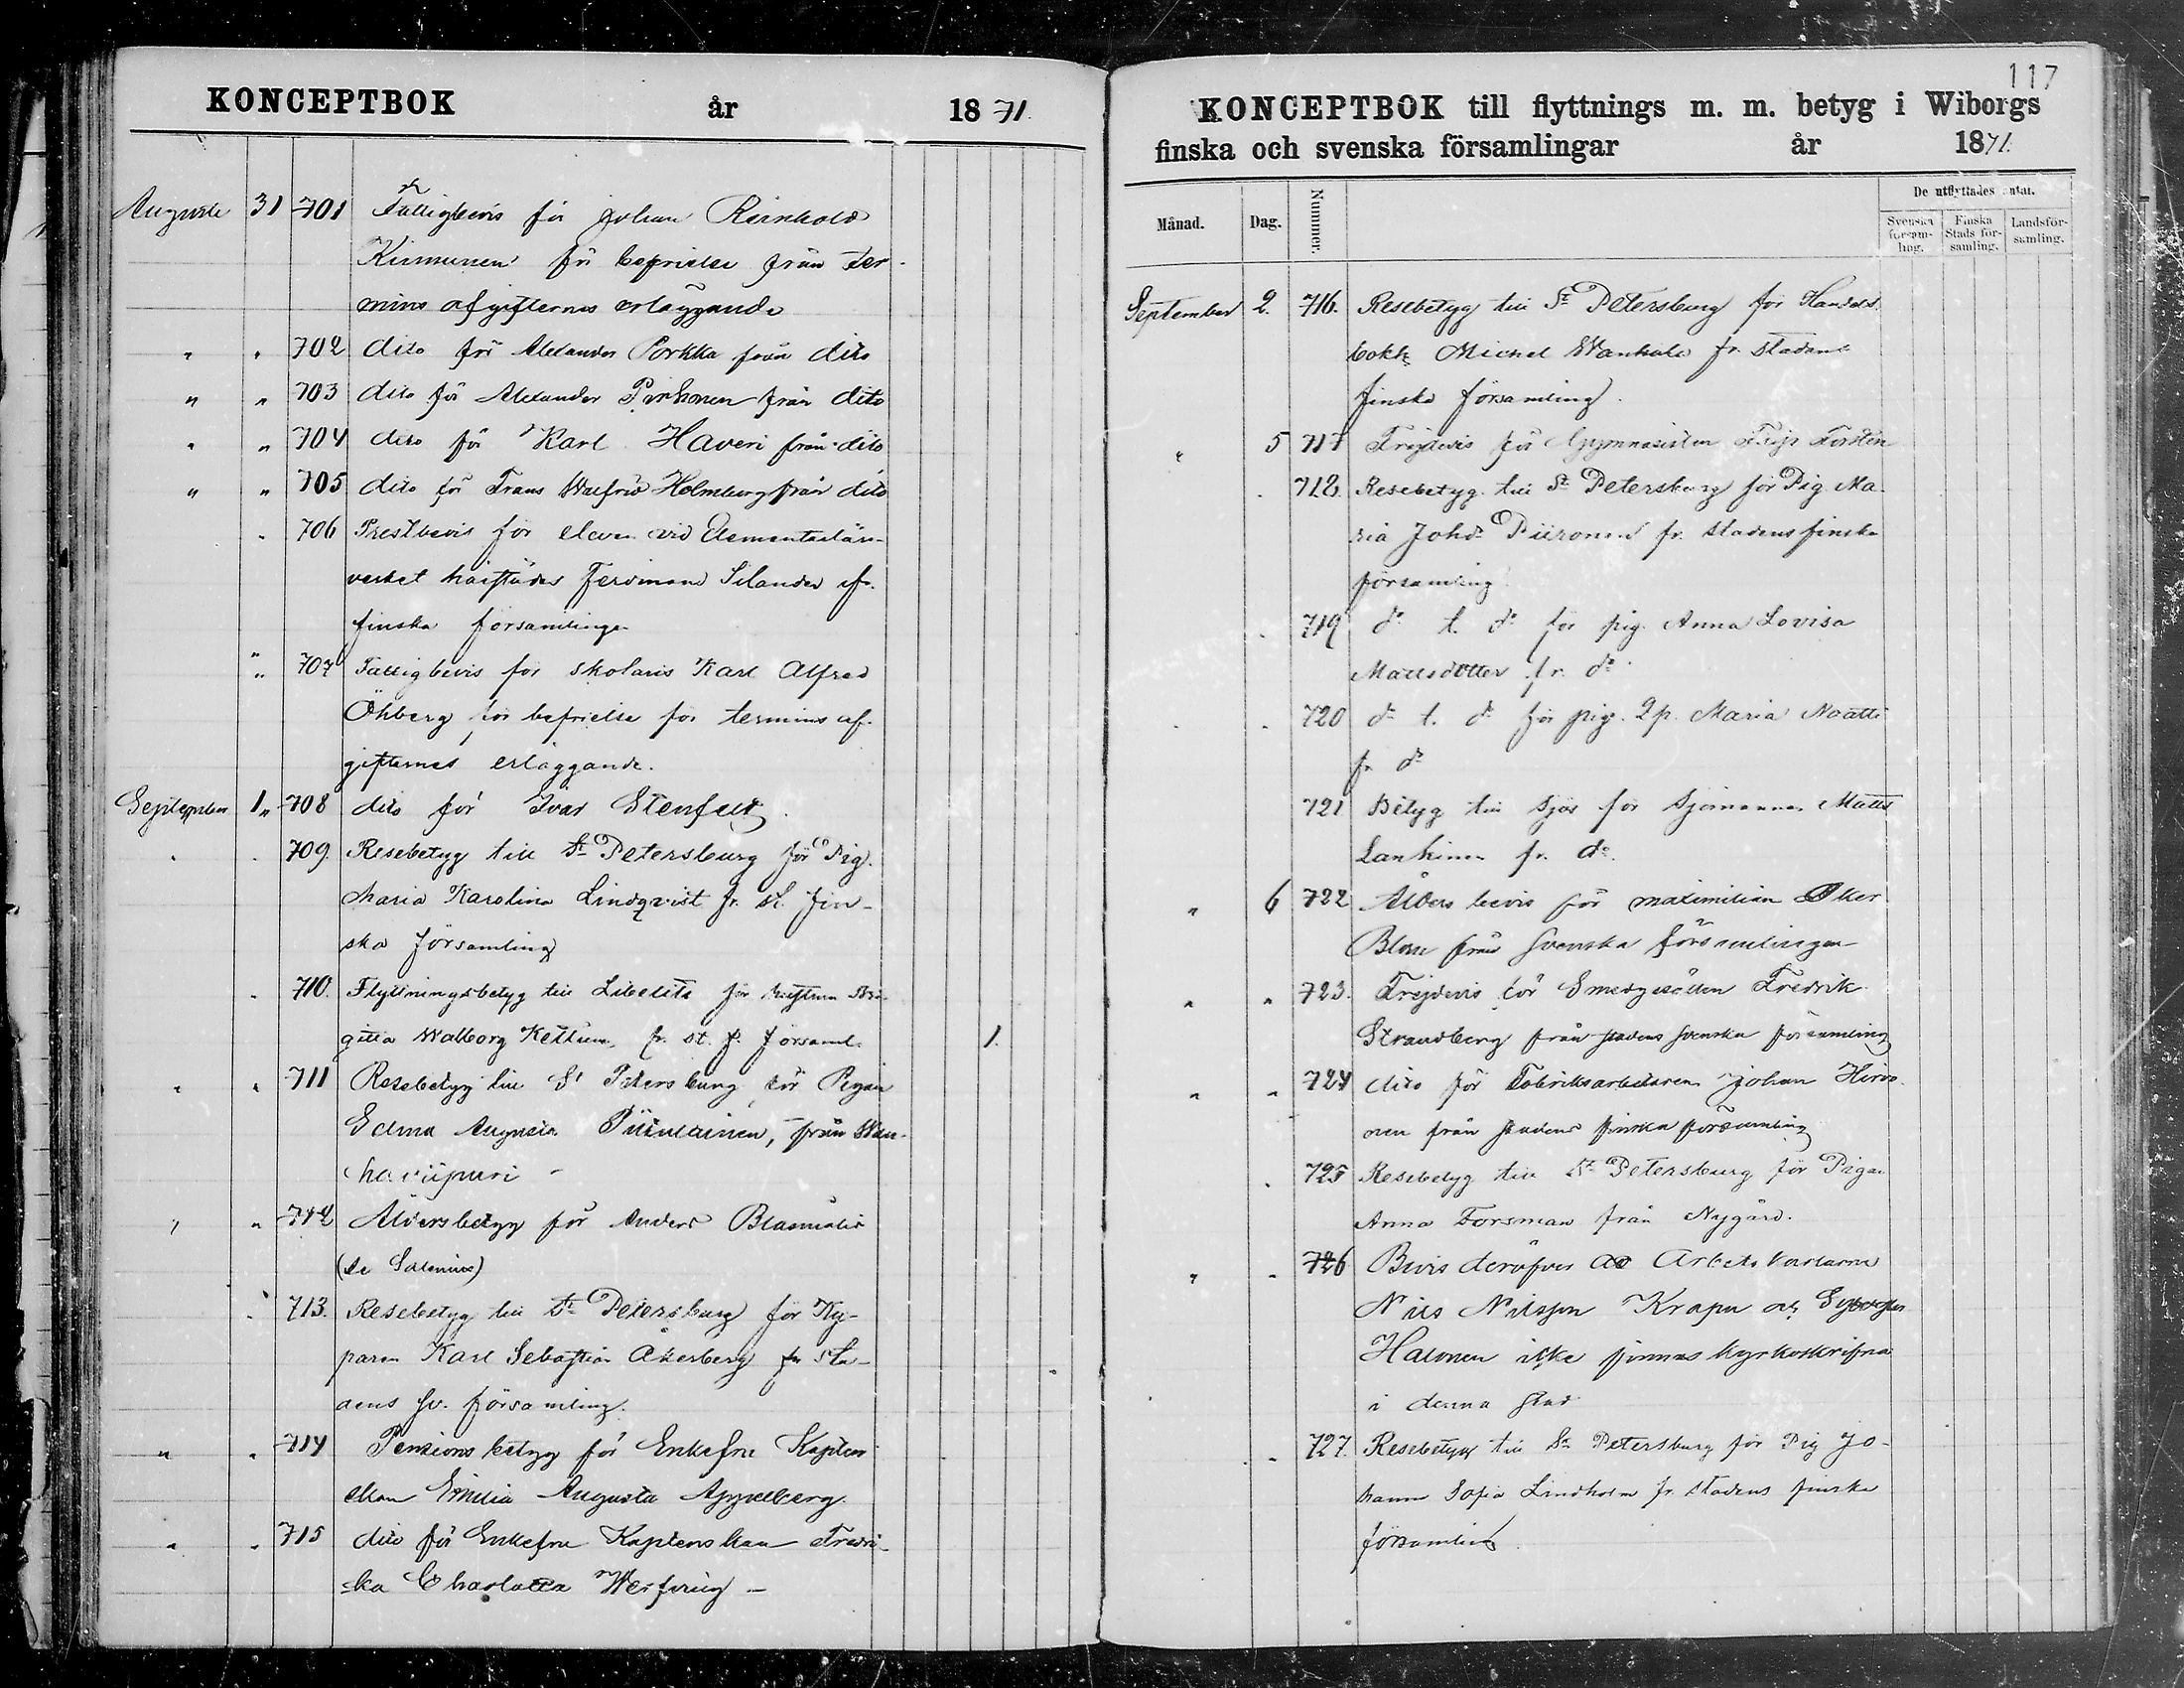 KONCEPTBOK år 1871.
Augusti 31 701 Fattigbevis för Johan Reinhold
Kinnunen för befrielse från ter-
mins afgifternas erläggande
" " 702 dito för Alexander Porkka från dito
" " 703 dito för Alexander Pinhonen från dito
" " 704 dito för Karl Haveri från dito
" " 705 dito för Frans Walfrid Holmberg från dito
" 706 Prestbevis för eleven vid Elementarläro-
verket härstädes Ferdinand Silander fr.
finska församlingen
" 707 Fattigbevis för skolaris Karl Alfred
Öhberg för befrielse för termins af-
gifternas erläggande.
September 1 " 708 dito för Ivar Stenfelt.
" " 709. Resebetyg till St Petersburg för Pig.
Maria Karolina Lindqvist fr. st. fin-
ska församling
" 710. Flyttningsbetyg till Libelits för hustrun Bri-
gitta Walborg Kettunen fr. st. f. församl. 1.
" " 711 Resebetyg till St Petersburg för Pigan
Edma Augusta Piimäinen, från Wan-
haviipuri -
" " 712 Åldersbetyg för Anders Blasius
(de Salenius)
" 713. Resebetyg till St Petersburg för Ky-
paren Karl Sebastian Åkerberg fr sta-
dens sv. församling.
" " 714 Pensions betyg för Enkefru Kapten-
skan Emilia Augusta Appelberg.
" " 715 dito för Enkefru Kaptenskan Fredri-
ka Charlotta Werfving -
117
KONCEPTBOK till flyttnings m. m. betyg i Wiborgs
finska och svenska församlingar år 1871.
Månad. Dag. Nummer. De utflyttades antal.
Svenska försam-ling. Finska Stads för-samling. Landsför-samling.
September 2. 716. Resebetyg till St Petersburg för Handels
bokh. Michel Wanhala fr. stadens
finska församling.
" 5 717 Frejdevis för Gymnasisten Forstén
" 718. Resebetyg till St Petersburg för Pig. Ma-
ria Johd Piironen fr. stadens finska
församling
" 719 do t. do för pig. Anna Lovisa
Mattsdotter fr. do
" " 720 do t. do för pig. Maria Naatti
fr do
721 Betyg till sjös för sjömannen Matts
Lankinen fr. do.
" 6 722 Ålders bevis för Maximilian
Blom från svenska församlingen
" " 723. Frejdevis för Smedgesällen Fredrik
Strandberg från stadens svenska församling
" " 724 dito för Fabriksarbetaren Johan Hirvo
nen från stadens finska församling
" 725 Resebetyg till St Petersburg för Pigan
Anna Forsman från Nygård.
" " 726 Bevis deröfver att Arbets karlarne
Nils Nilsson Krapu och
Halonen icke finnas kyrkoskrifna
i denna stad
" 727. Resebetyg till St Petersburg för Pig Jo-
hanna Sofia Lindholm fr. stadens finska
församling.